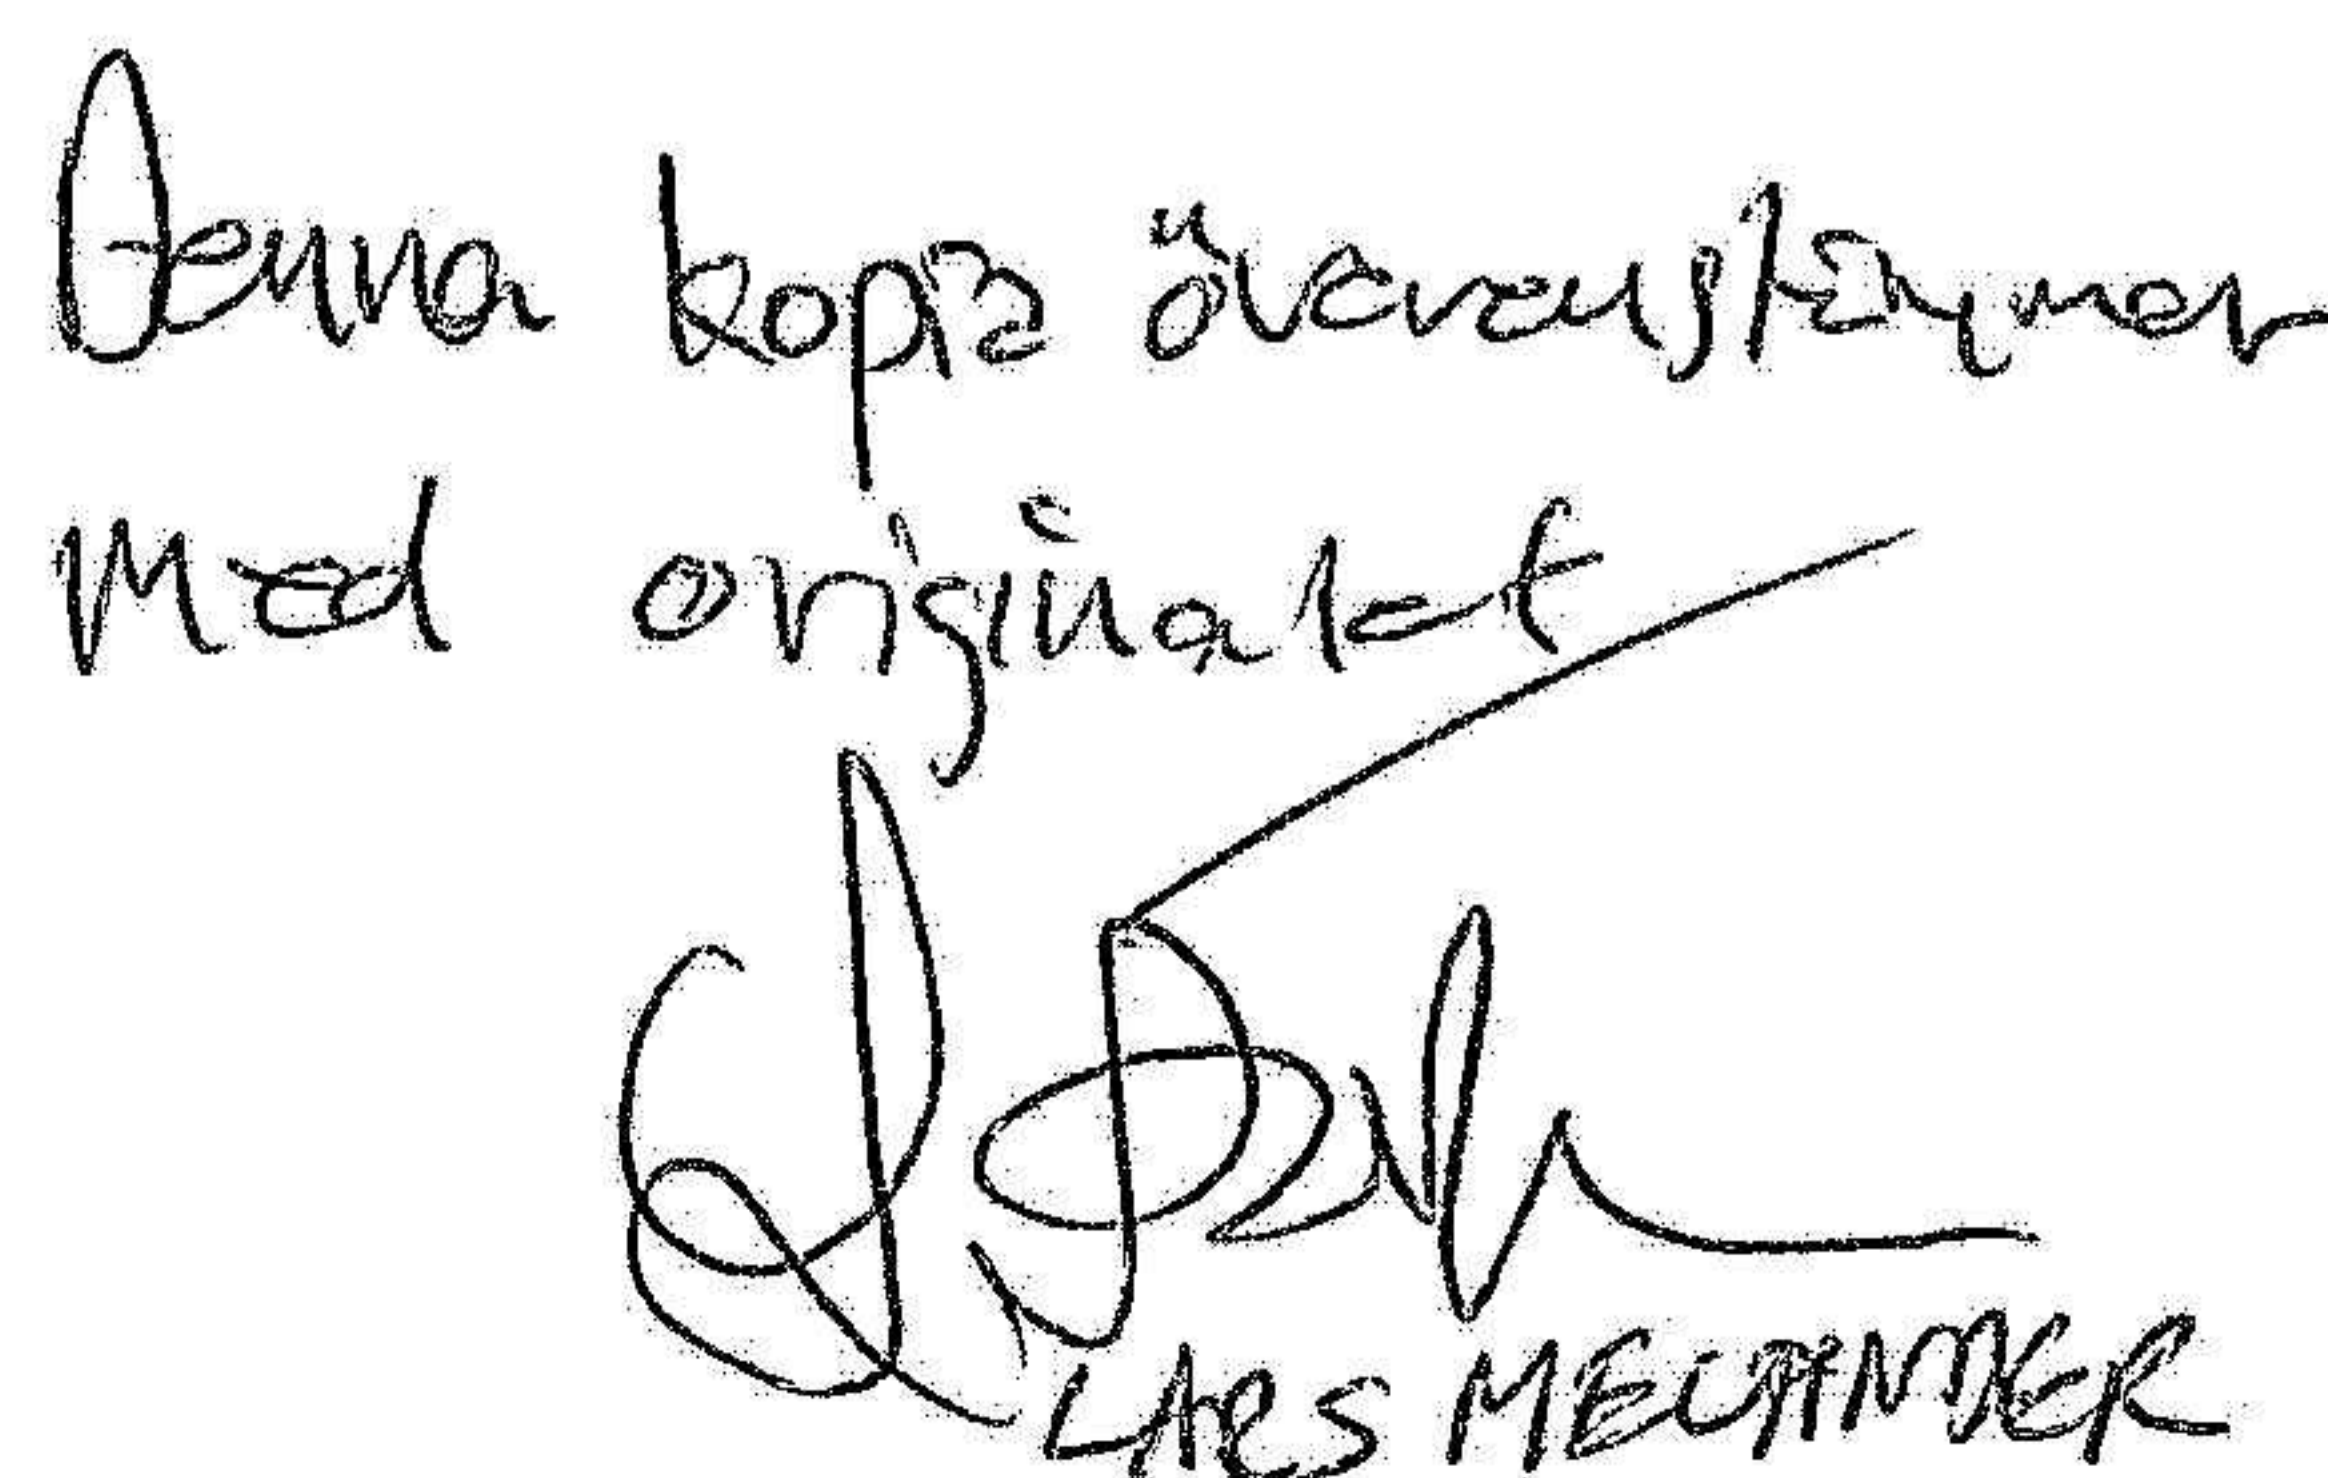 Denna kopia överensstämmer
med originalet
LARS MELANDER